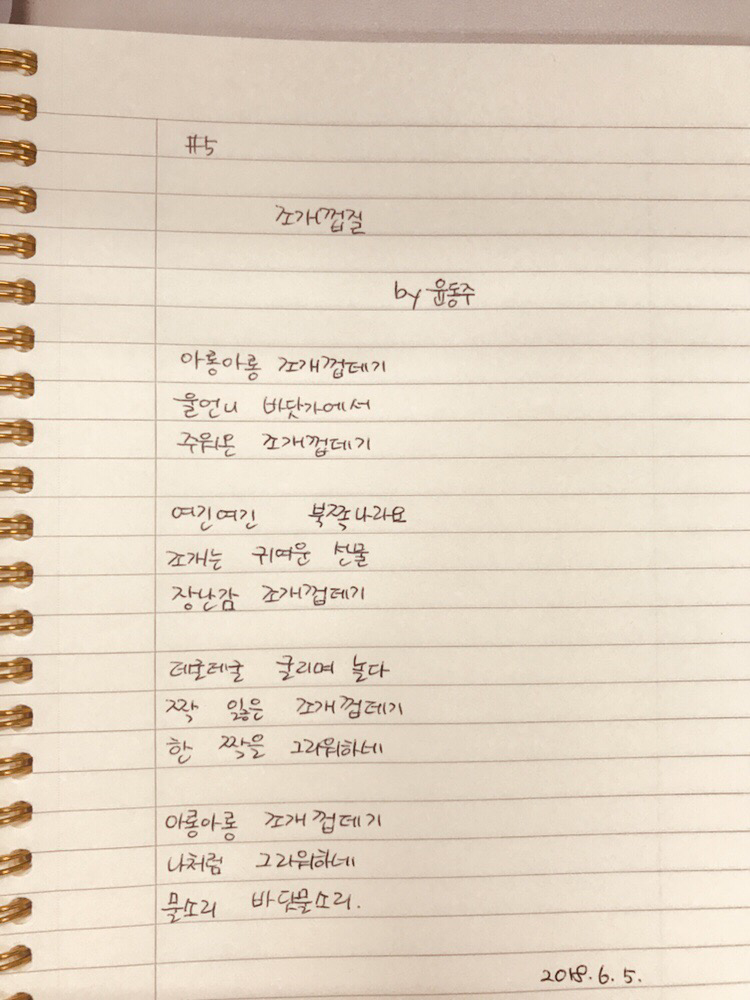 #5
조개껍질
by 윤동주
아롱아롱 조개껍데기
울언니 바닷가에서
주워온 조개껍데기
여긴여긴 북쪽나라요
조개는 귀여운 선물
장난감 조개껍데기
데굴데굴 굴리며 놀다
짝 잃은 조개껍데기
한 짝을 그리워하네
아롱아롱 조개껍데기
나처럼 그리워하네
물소리 바닷물소리.
2018. 6. 5.